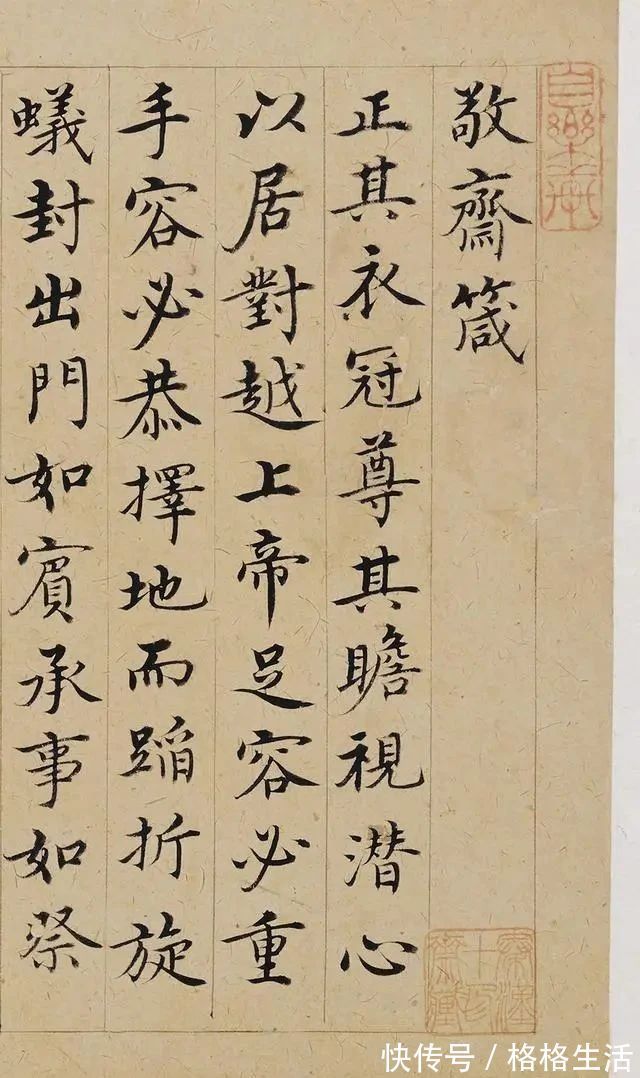 敬齋箴
正其衣冠尊其瞻視潜心
以居對越上帝足容必重
手容必恭擇地而蹈折旋
蟻封出門如賓承事如祭
快传号/格格生活